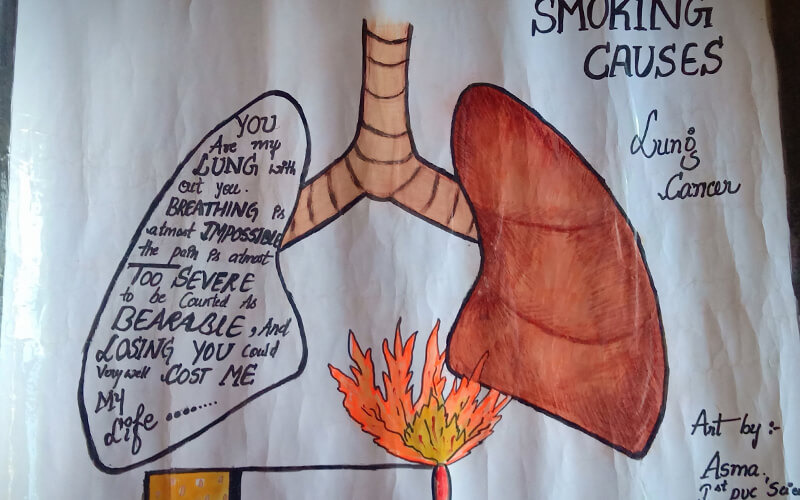 SMOKING
CAUSES
Lung
is
Cancer
YOU
Are my
LUNG with
out you.
BREATHING Ps
atmost IMPOSSIBLE
the pain Ps atmost
TOO SEVERE
to be Counted As
BEARABLE , And
LOSING YOU Could
Very well COST ME
MY
Life ........
Art by :-
Asma.
Ist PUC